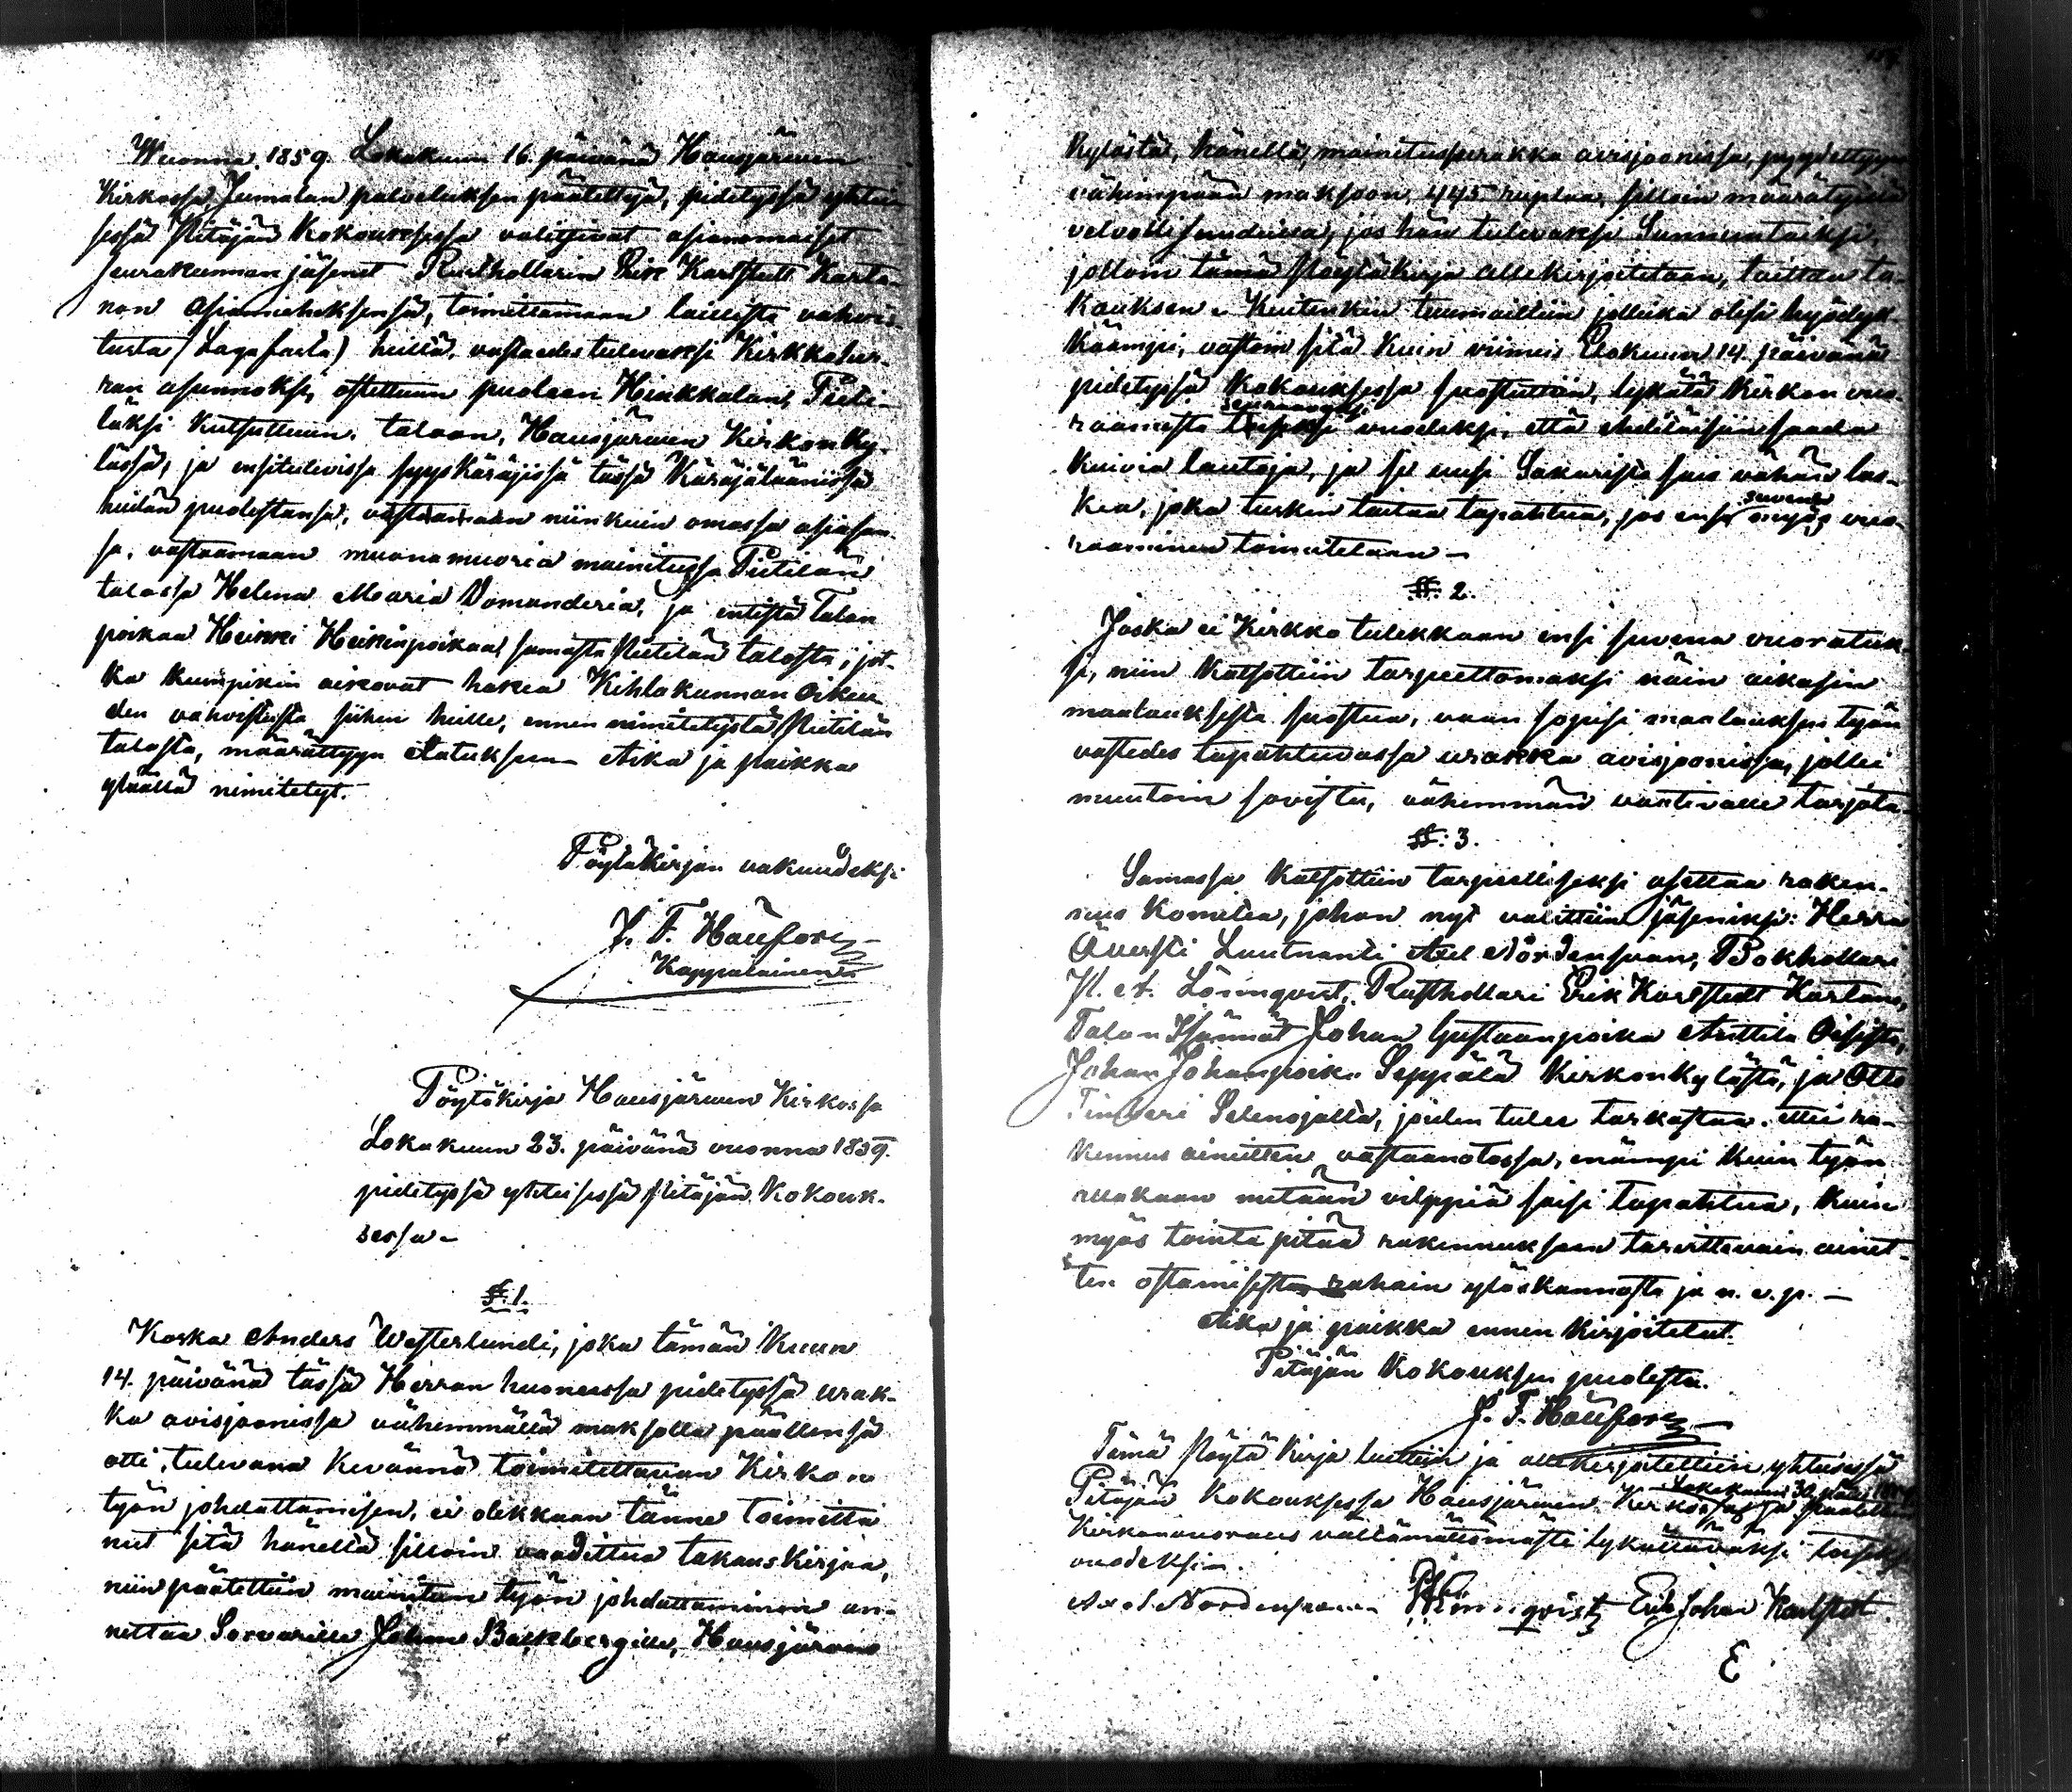 Wuonna 1859. Lokakuun 16 päivänä Hausjärwen
Kirkossa Jumalan palveluksen päätettyä, pidetyssä yhtei-
sessä Pitäjän Kokouksessa valitsivat asianomaiset
seurakunnan jäsenet Rusthollarin Erik Karlstedt Karta-
non Asiamieheksensä, toimittamaan laillista vahvis-
tusta (Lagafarta) heillä, vastaedes tulevaksi Kirkkoher-
ran asunnoksi, ostettuun puoleen Hinkkalan, Pieti-
läksi kutsuttuun, taloon, Hausjärwen Kirkonky-
lässä, ja ensitulevissa syys Käräjissä tässä Käräjäläänissä
heidän puolestansa, vastaamaan niinkuin omassa asiasan-
sa, vastaamaan muonamuoria mainitussa Pietilän
talossa Helena Maaria Domanderia, ja entistä Talon
poikaa Heikki Heikinpoikaa samasta Pietilän talosta, jot-
ka kumpikin aikovat hakea Kihlakunnan Oikeu-
den vahvistusta siihen heille, ennen nimitetystä Pietilän
talosta, määrättyyn Elatukseen Aika ja paikka
ylhäällä nimitetyt.
Pöytäkirjan vakuudeksi
J. F. Häufors
Kappalainen
Pöytäkirja Hausjärwen Kirkossa
Lokakuun 23. päivänä vuonna 1859.
pidetyssä yhteisessä Pitäjän Kokouk-
sessa
§. 1.
Koska Anders Westerlundi, joka tämän kuun
14. päivänä tässä Herran huoneessa pidetyssä urak-
ka avisjoonissa vähemmällä maksolla päällensä
otti, tulevana kevännä toimitettavan Kirkon
työn johdattamisen, ei olekkaan tänne toimitta-
nut sitä häneltä silloin vaadittua takaus kirjaa,
niin päätettiin mainitun työn johdattaminen an-
nettaa Sorvarille Johan Backbergille, Hausjärven
Kylästä, hänellä, mainetussa urakka avisjoonissa, pyydettyyn
vähimpään maksoon, 445 ruplaa, silloin määrätyillä
velvollisuuksilla, jos hän tulevaksi Sunnuntaiksi,
jolloin tämä Pöytäkirja allekirjoitetaan, taittaa ta-
kauksen. Kuitenkin tuumailtiin jollaika olisi hyödyl-
käämpi, vastoin sitä kuin viimeis Elokuun 14. päivänä
pidetyssä Kokouksessa suostuttiin, lykätä Kirkon vuo-
raamista seuraavaksi vuodeksi, että ehdittäisiin saada
kuivia lautoja, ja se uusi Sakaristo sais vähän las-
kea, joka turkin taitaa tapahtua, jos ensi suvena vuo-
raaminen toimitetaan
§. 2.
Joska ei Kirkko tulekkaan ensi suvena vuoratuk-
si, niin katsottiin tarpeettomaksi näin aikasin
maalauksesta suostua, vaan sopisi maalauksen työn
vastedes tapahtuvassa urakka avisjoonissa, jollei
muutoin sovistu, vähemmän vaativalle tarjota.
§. 3.
Samassa katsottiin tarpeelliseksi asettaa raken-
nus Komitea, johon nyt valittiin jäseniksi: Herra
Översti Luutnanti Axel Nordensvan, Bokhollari
H. A. Lönnqvist, Rusthollari Erik Karlstedt Kartano,
Talon Isännät Johan Gustaanpoika Anttila Oisista,
Johan Johanpoika Seppälä Kirkonkylästä, ja Otto
Timperi Selenojalla, joiden tulee tarkastaa, ettei ra-
kennus aineitten vastaanotossa, enämpi kuin työn
aikaan mitään vilppiä saisi tapahtua, kuin
myös tointa pitää rakennukseen tarvittavain ainet-
ten ostamisesta, rahain ylöskannosta ja n. e. p. —
Aika ja paikka ennen kirjoitetut.
Pitäjän Kokouksen puolesta.
J. F. Häufors
Tämä Pöytä kirja luettiin ja allekirjoitettiin yhteisessä
Pitäjän Kokouksessa Hausjärwen Kirkossa Lokakuun 30 päiv. 1859 ja päätettiin
Kirkonvuoraus välttämättömästi lykättäväksi toiseksi
vuodeksi.
Axel Nordensvan HALönnqvist Erik Johan Karlstedt